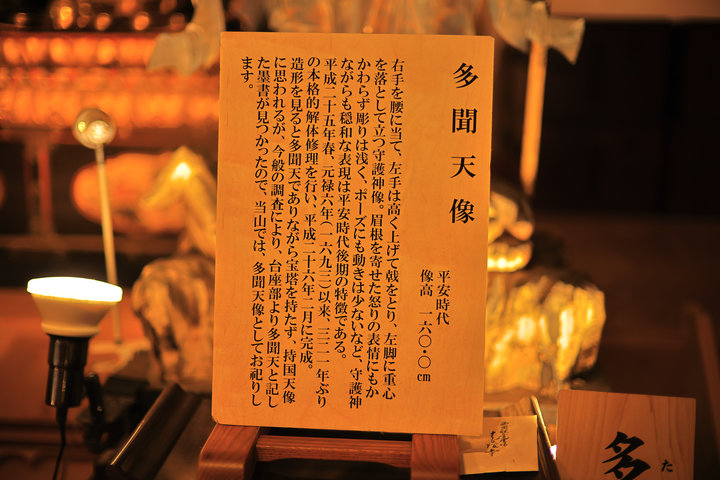 多聞天像
平安時代
像高 一六〇・〇㎝
右手を腰に当て、左手は高く上げて戟をとり、左脚に重心
を落として立つ守護神像。眉根を寄せた怒りの表情にもか
かわらず彫りは浅く、ポーズにも動きは少ないなど、守護神
ながらも穏和な表現は平安時代後期の特徴である。
平成二十五年春、元禄六年(一六九三)以来、三二一年ぶり
の本格的解体修理を行い、平成二十六年二月に完成。
造形を見ると多聞天でありながら宝塔を持たず、持国天像
に思われるが、今般の調査により、台座部より多聞天と記し
た墨書が見つかったので、当山では、多聞天像としてお祀りし
ます。
た
多